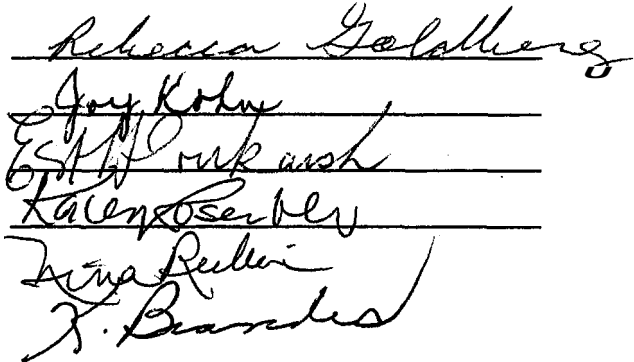 Rebecca Goldberg
Joy Kohn
Karen Rosenberg
Nina Rubin
K. Brandes